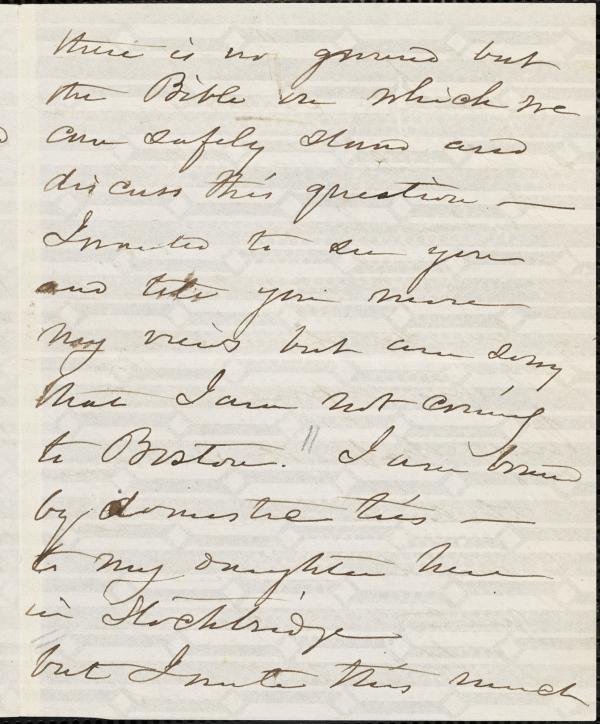 there is no ground but
the Bible on which we
can safely stand and
discuss this question —
I wanted to see you
and tell you more
my views but am sorry
that I am not coming
to Boston. I am bound
by domestic ties —
to my daughter here
in Stockbridge
but I write this much